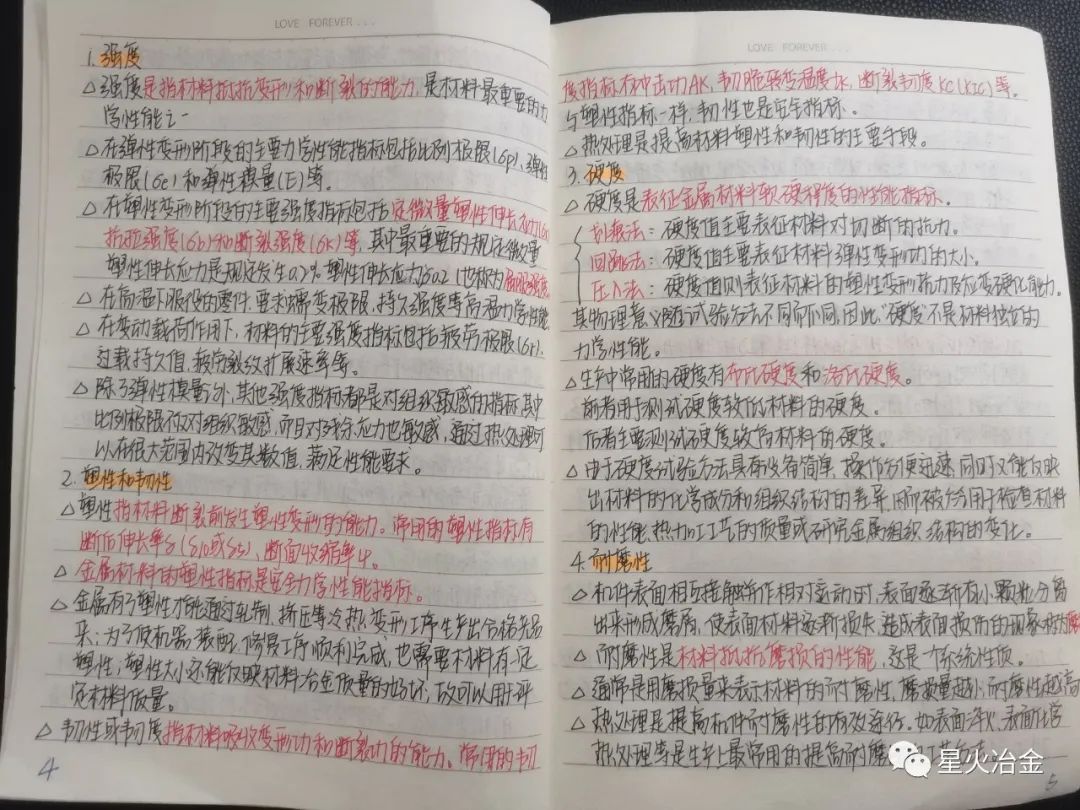 LOVE FOREVER...
1. 强度
△强度是指材料抵抗变形和断裂的能力,是材料最重要的力
学性能之一
△在弹性变形阶段的主要力学性能指标包括比例极限(6p)、弹性
极限(6e)和弹性模量(E)等。
△在塑性变形阶段的主要强度指标包括定微量塑性伸长应力(6
抗拉强度(6b)和断裂强度(6k)等,其中最重要的规定微量
塑性伸长应力是规定发生0.2%塑性伸长应力60.2(也称为屈服强度
△在高温下服役的零件,要求蠕变极限、持久强度等高温力学性能
△在变动载荷作用下,材料的主要强度指标包括疲劳极限(6r)、
过载持久值、疲劳裂纹扩展速率等。
△除了弹性模量外,其他强度指标都是对组织敏感的指标,其中
比例极限不仅对组织敏感,而且对残余应力也敏感,通过热处理可
以在很大范围内改变其数值,满足性能要求。
2. 塑性和韧性
△塑性指材料断裂前发生塑性变形的能力。常用的塑性指标有
断后伸长率δ(δ10或δ5)、断面收缩率ψ。
△金属材料的塑性指标是安全力学性能指标。
△金属有了塑性才能通过轧制、挤压等冷热变形工序生产出合格产品
来;为了使机器装配、修复工序顺利完成,也需要材料有一定
塑性;塑性大小还能反映材料冶金质量的好坏,故可以用于评
定材料质量。
△韧性或韧度指材料吸收变形功和断裂功的能力。常用的韧
4
LOVE FOREVER...
度指标有冲击功AK、韧脆转变温度tK、断裂韧度KC(KIC)等。
与塑性指标一样,韧性也是安全指标。
△热处理是提高材料塑性和韧性的主要手段。
3. 硬度
△硬度是表征金属材料软硬程度的性能指标。
划痕法:硬度值主要表征材料对切断的抗力。
回跳法:硬度值主要表征材料弹性变形功的大小。
压入法:硬度值则表征材料的塑性变形抗力及应变硬化能力。
其物理意义随试验方法不同而不同,因此,"硬度"不是材料独立的
力学性能。
△生产中常用的硬度有布氏硬度和洛氏硬度。
前者用于测试硬度较低材料的硬度。
后者主要测试硬度较高材料的硬度。
△由于硬度试验方法具有设备简单、操作方便迅速,同时又能反映
出材料的化学成分和组织结构的差异,因而被广泛用于检查材料
的性能、热加工工艺的质量或研究金属组织结构的变化。
4. 耐磨性
△机件表面相互接触并作相对运动时,表面逐渐有小颗粒分离
出来形成磨屑,使表面材料逐渐损失、造成表面损伤的现象称为磨
△耐磨性是材料抵抗磨损的性能,这是个系统性质。
△通常是用磨损量来表示材料的耐磨性,磨损量越小,耐磨性越高
△热处理是提高机件耐磨性的有效途径,如表面淬火、表面化学
热处理等是生产上最常用的提高耐磨
星火冶金
5